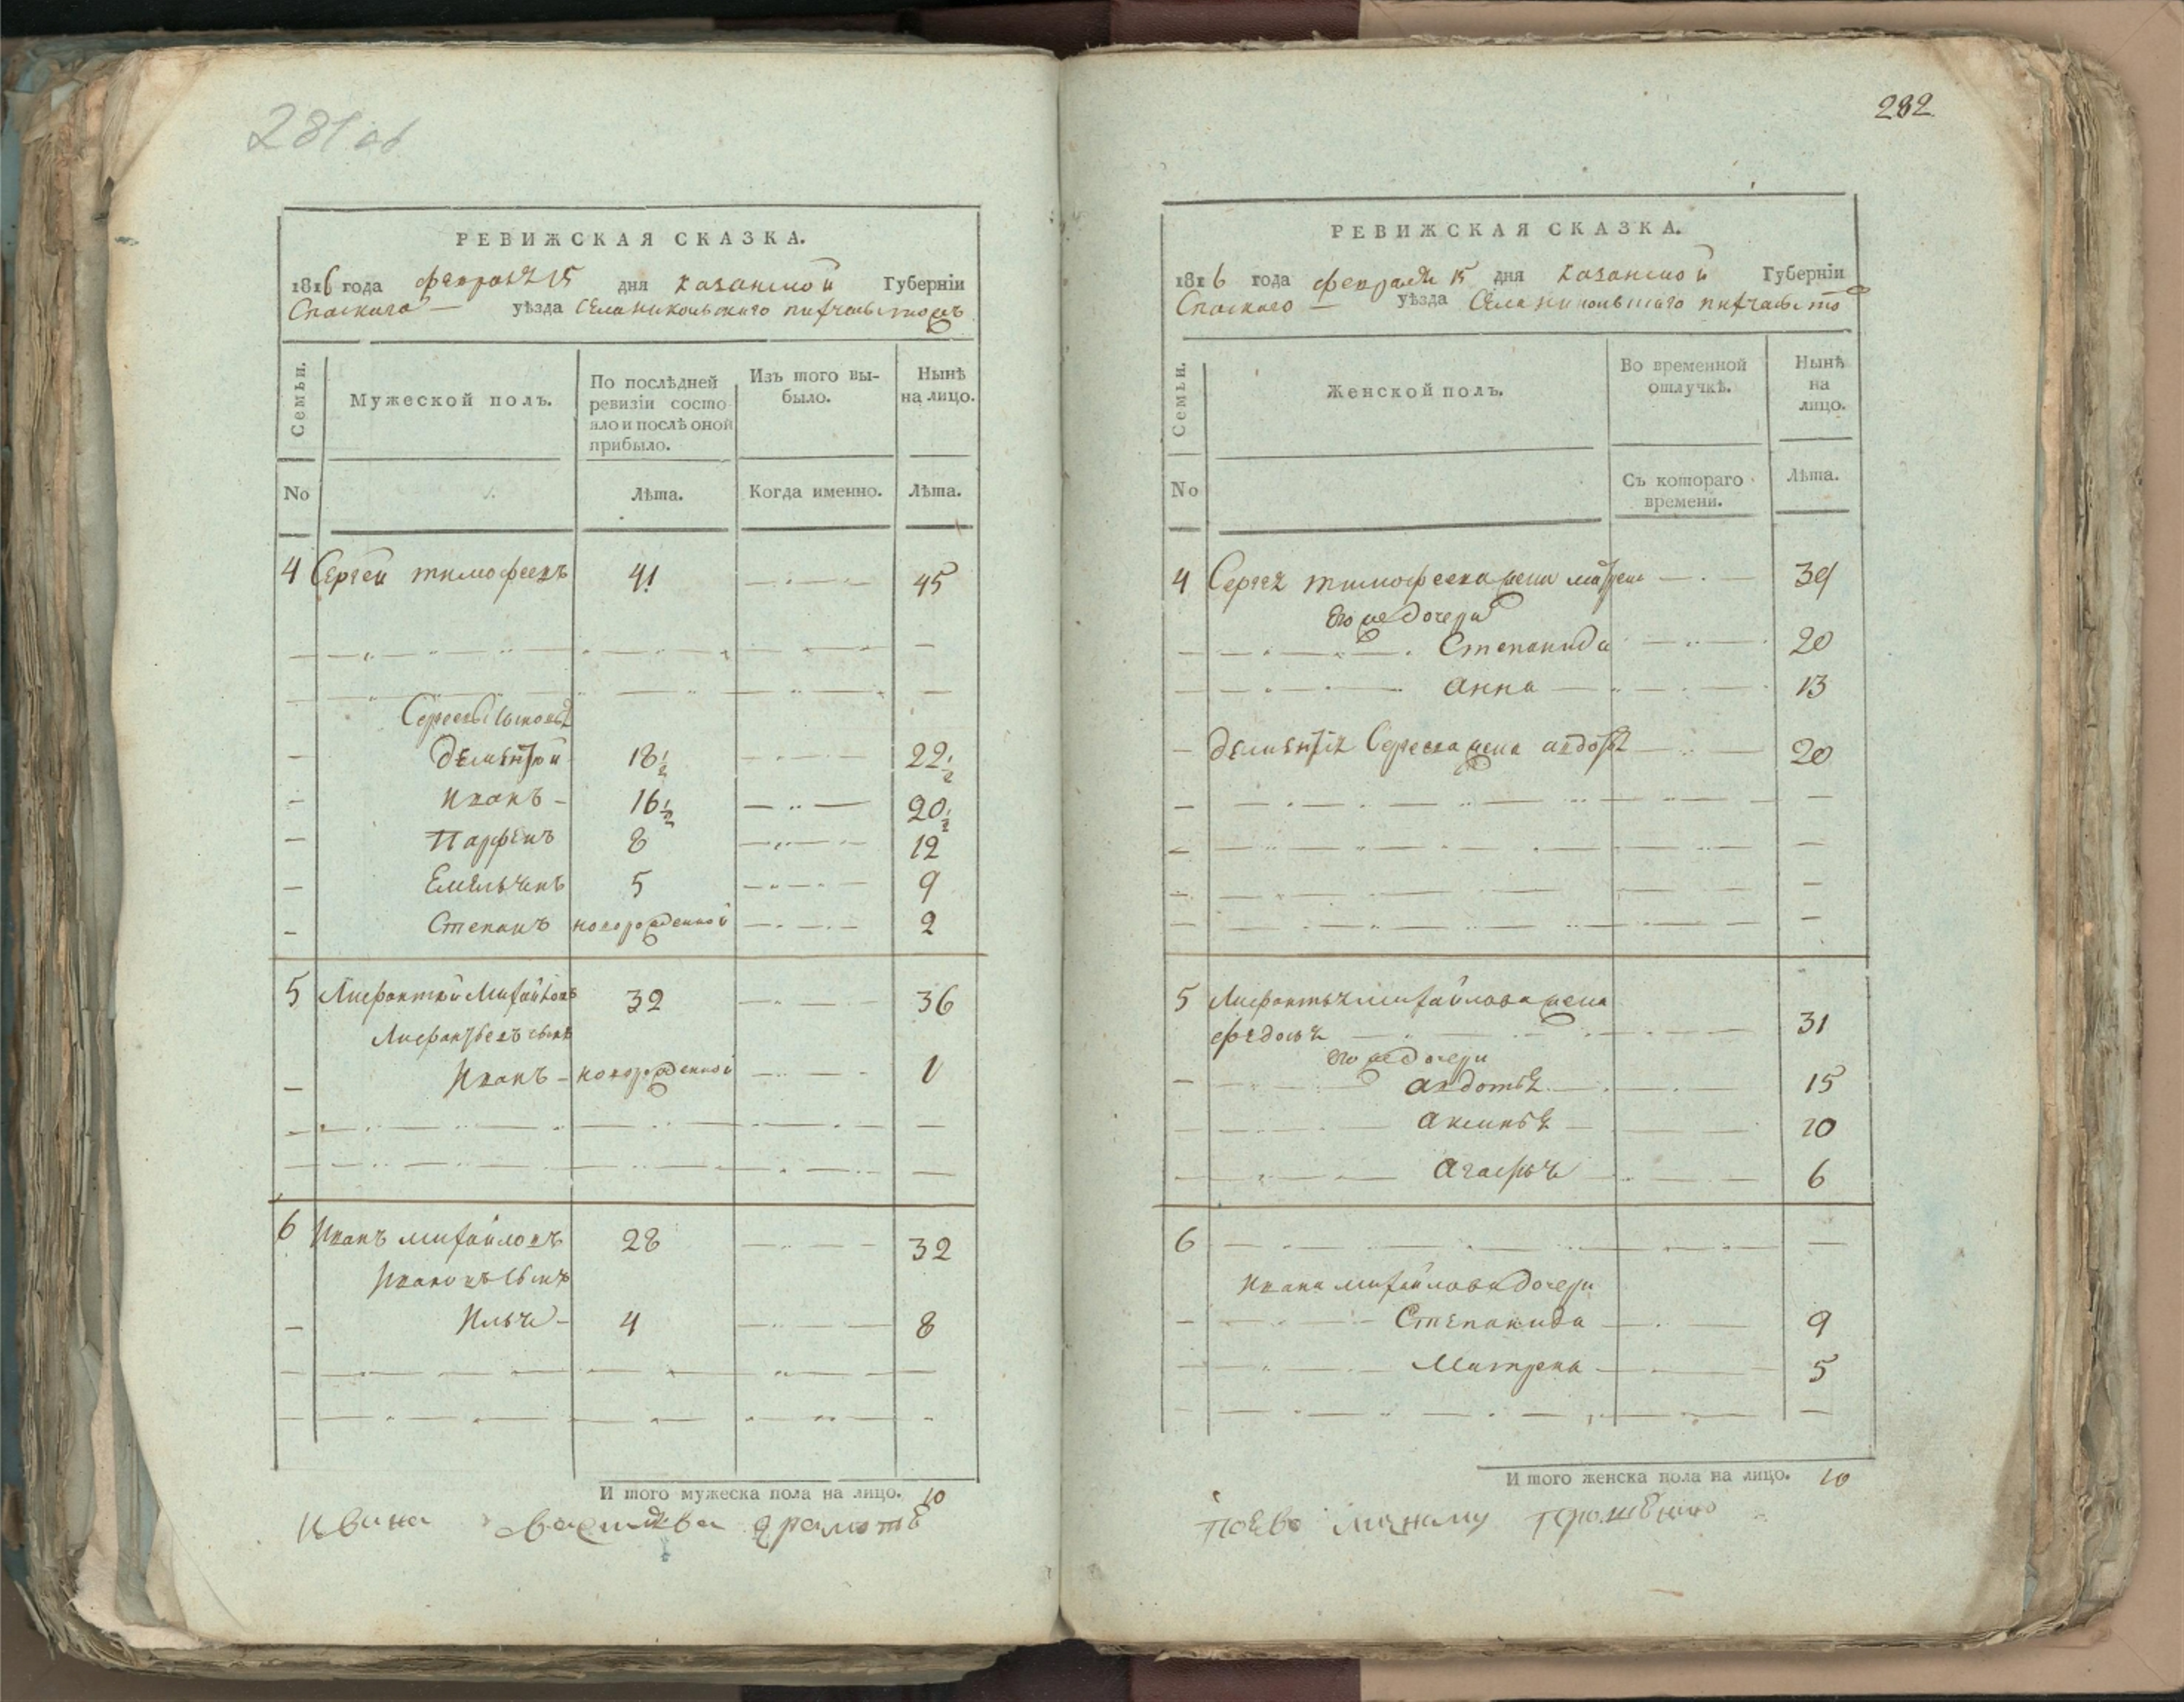 281 об
РЕВИЖСКАЯ СКАЗКА.
1816 года февраля 15 дня казанской Губернїи
Спаскаго уѣзда Села никольскаго
Семьи.
Мужеской полъ.
По послѣдней ревизїи состо
яло и послѣ оной
прибыло.
Изъ того вы-
было.
Нынѣ
на лицо.
No
Лѣта.
Когда именно.
Лѣта.
4 Сергей тимофеевъ 41 45
Сергеевы сыновья
дементей 18 1/2 22 1/2
Иванъ 16 1/2 20 1/2
Парфенъ 8 12
Емельянъ 5 9
Степанъ новорожденной 2
5 Михайловъ 32 36
сынъ
Иванъ новорожденной 1
6 Иванъ михайловъ 28 32
Ивановъ сынъ
Илья 4 8
И того мужеска пола на лицо. 10
грамотѣ
282
РЕВИЖСКАЯ СКАЗКА.
1816 года февраля 15 дня казанской Губернїи
Спаскаго уѣзда Села никольскаго
Семьи.
Женской полъ.
Во временной
отлучкѣ.
Нынѣ
на
лицо.
No
Съ котораго
времени.
Лѣта.
4 Сергея тимофеева жена матрена 39
его же дочери
Степанида 20
анна 13
дементья Сергеева жена авдотья 20
5 михайлова жена
федосья 31
его же дочери
авдотья 15
аксинья 10
агафья 6
6
Ивана михайлова дочери
Степанида 9
Матрена 5
И того женска пола на лицо. 10
поево прошению